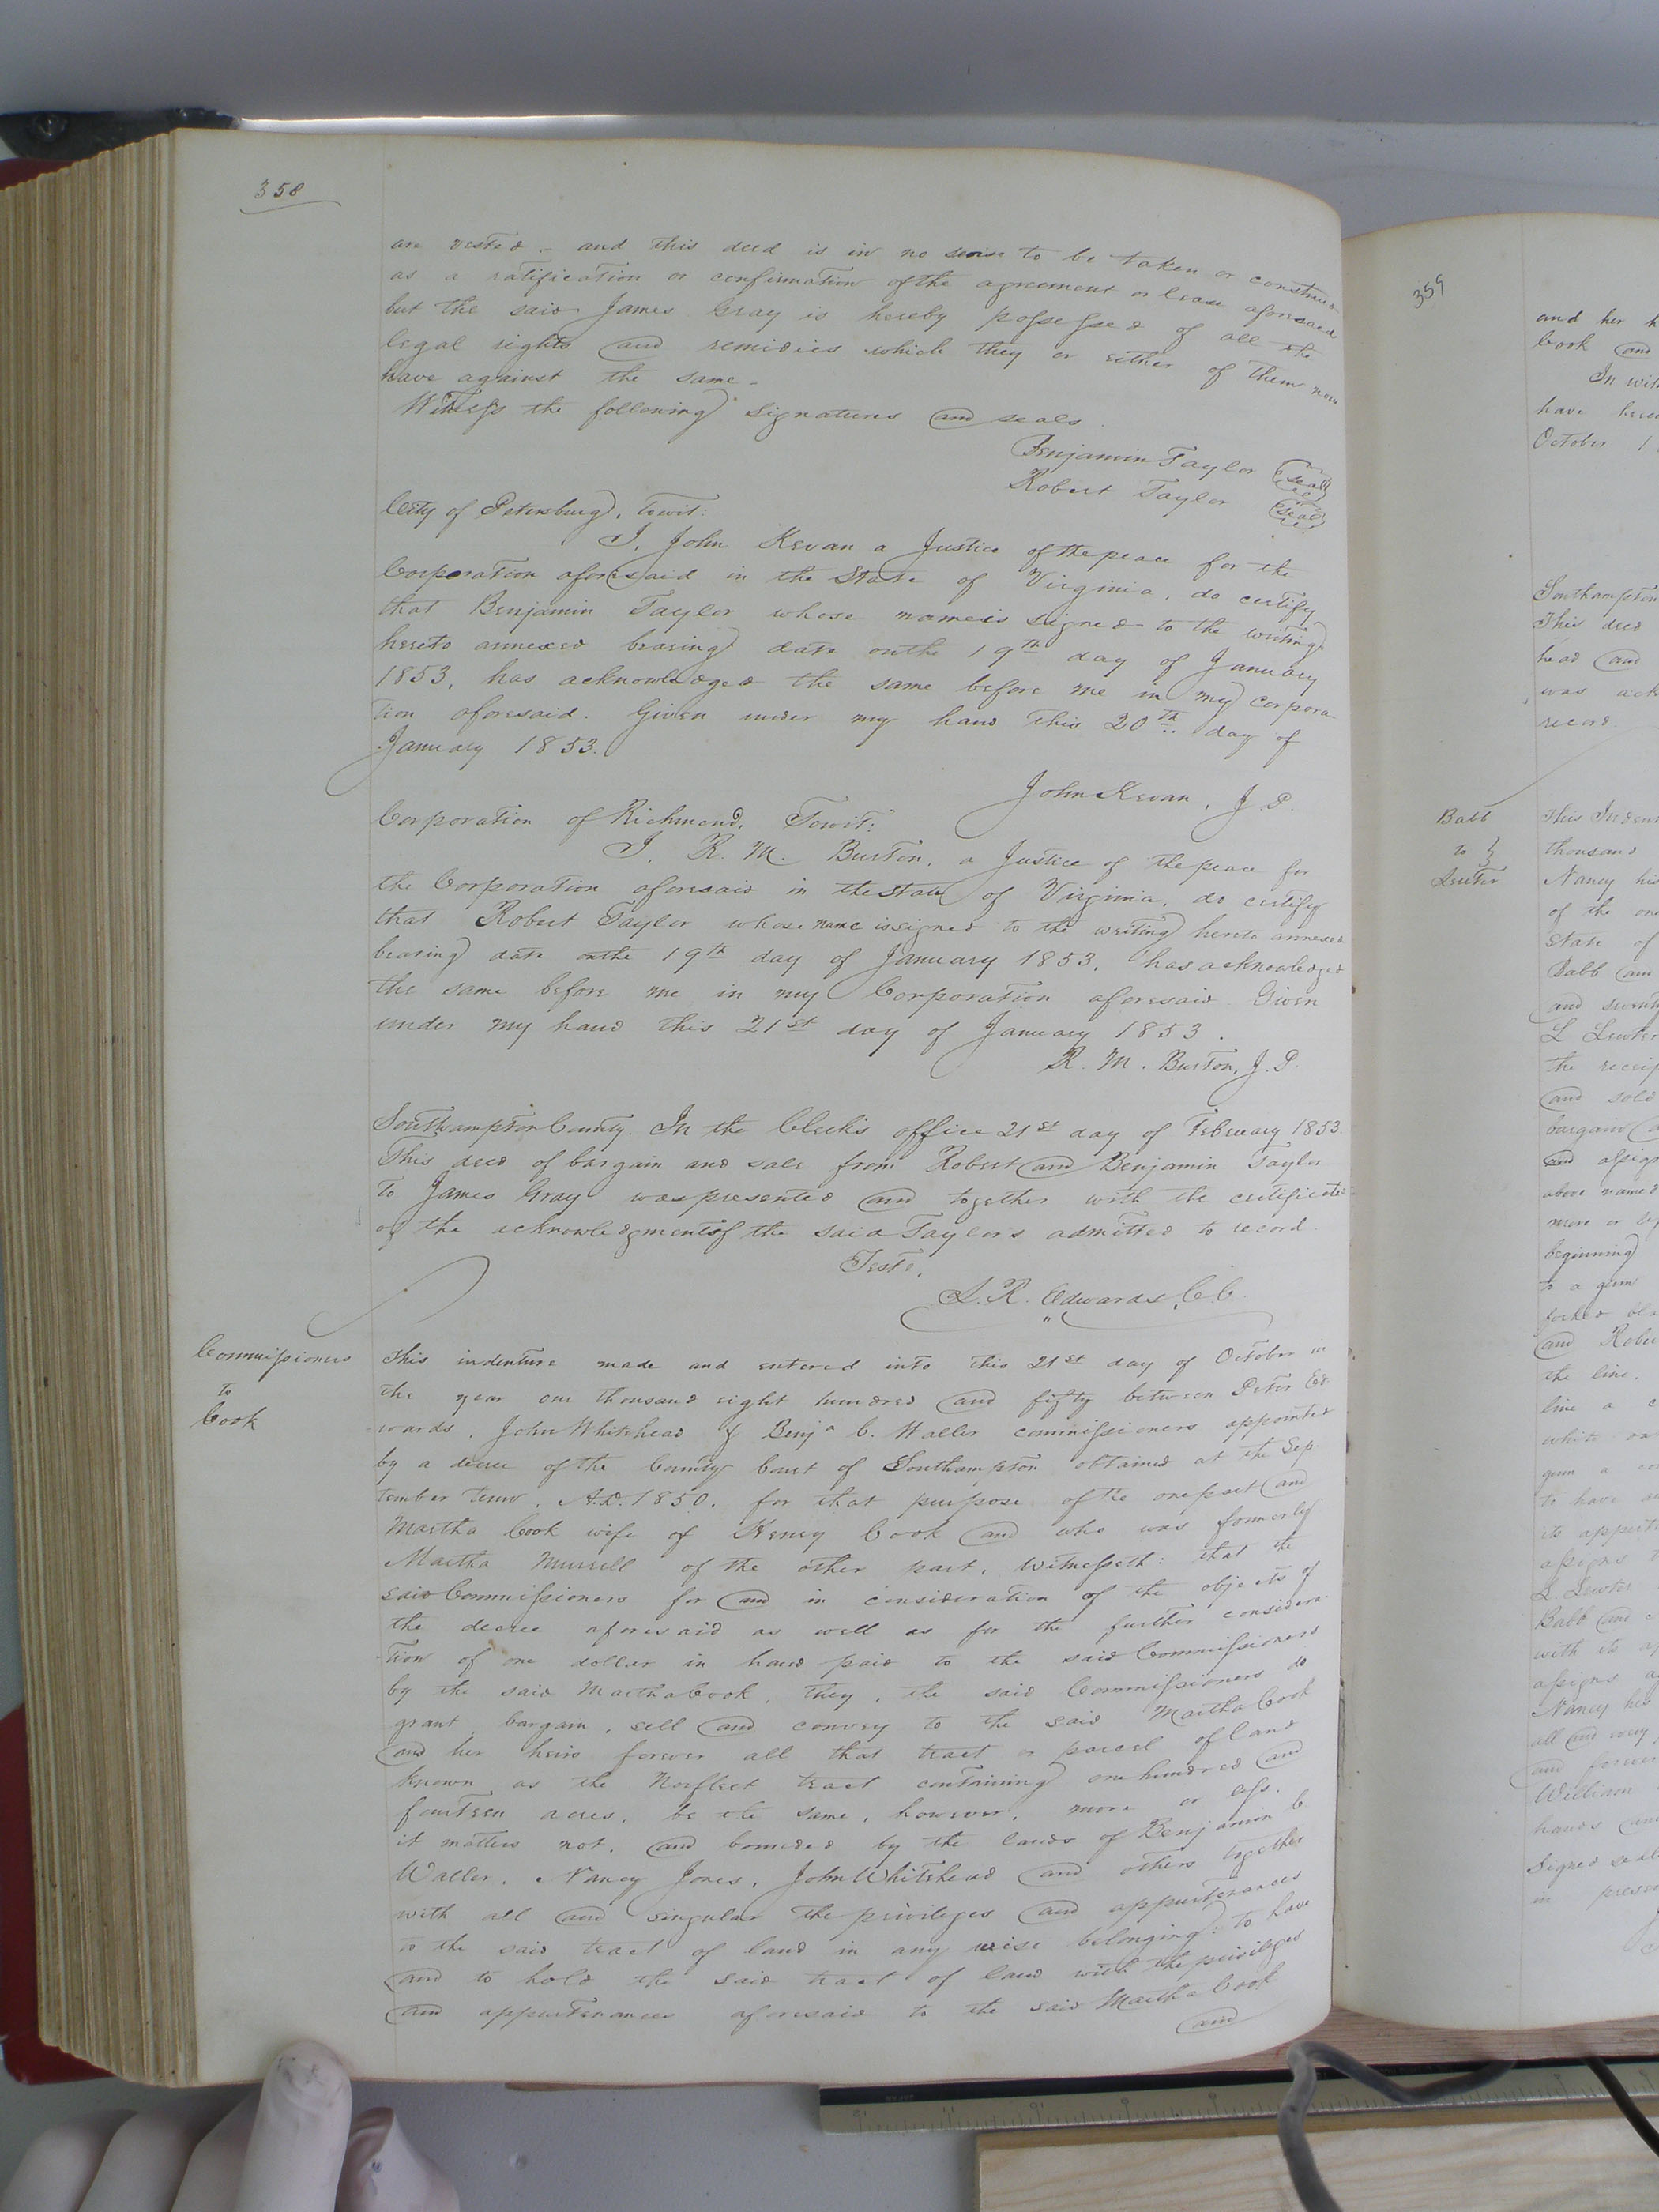 358
are vested - and this deed is in no sense to be taken or construed
as a ratification or confirmation of the agreement or lease aforesaid
but the said James Gray is hereby possessed of all the
legal rights and remidies which they or either of them now
have against the same -
Witness the following signatures and seals.
Benjamin Taylor (seal)
Robert Taylor (seal)
City of Petersburg, towit:
I, John Kevan a Justice of the peace for the
Corporation aforesaid in the State of Virginia, do certify
that Benjamin Taylor whose name is signed to the writing
hereto annexed bearing date on the 19th day of January
1853, has acknowledged the same before me in my corpora-
tion aforesaid. Given under my hand this 20th day of
January 1853.
John Kevan, J P.
Corporation of Richmond, Towit:
I, R. M. Burton, a Justice of the peace for
the Corporation aforesaid in the state of Virginia, do certify
that Robert Taylor whose name is signed to the writing hereto annexed
bearing date on the 19th day of January 1853, has acknowledged
the same before me in my Corporation aforesaid Given
under my hand this 21st day of January 1853.
R. M. Burton, J. P.
Southampton County. In the Clerk's office 21st day of February 1853.
This deed of bargain and sale from Robert and Benjamin Taylor
to James Gray was presented and together with the certificates
of the acknowledgments of the said Taylors admitted to record.
Teste,
L. R. Edwards, C.C.
Commissioners
to
Cook
This indenture made and entered into this 21st day of October in
the year one thousand eight hundred and fifty between Peter Ed-
wards, John Whitehead & Benja C. Waller commissioners appointed
by a decree of the County Court of Southampton obtained at the Sep-
tember term, A.D. 1850, for that purpose of the one part and
Martha Cook wife of Henry Cook and who was formerly
Martha Murrell of the other part, witnesseth: that the
said Commissioners for and in consideration of the objects of
the decree aforesaid as well as for the further considera-
tion of one dollar in hand paid to the said Commissioners
by the said Martha Cook, they, the said Commissioners do
grant, bargain, sell and convey to the said Martha Cook
and her heirs forever all that tract or parcel of land
known as the Norfleet tract containing one hundred and
fourteen acres, be the same, however, more or less,
it matters not, and bounded by the lands of Benjamin C.
Waller, Nancy Jones, John Whitehead and others together
with all and singular the privileges and appurtenances
to the said tract of land in any wise belonging: to have
and to hold the said tract of land with the privileges
and appurtenances aforesaid to the said Martha Cook
and
359
and her
Cook and
In wit
have here
October 1
Southampton
This deed
head and
was ack
record.
Babb
to
Lewter
This Inden
thousand
Nancy his
of the one
state of
Babb an
and sevent
L Lewter
the receip
and sold
bargain
and assign
above named
more or le
beginning
to a gum
forked
and Rober
the line.
line a c
white oa
gum a co
to have an
its appurt
assigns
L. Lewter
Babb and
with its ap
assigns ag
Nancy his
all and every
and forever
William
hands and
Signed seal
in presen